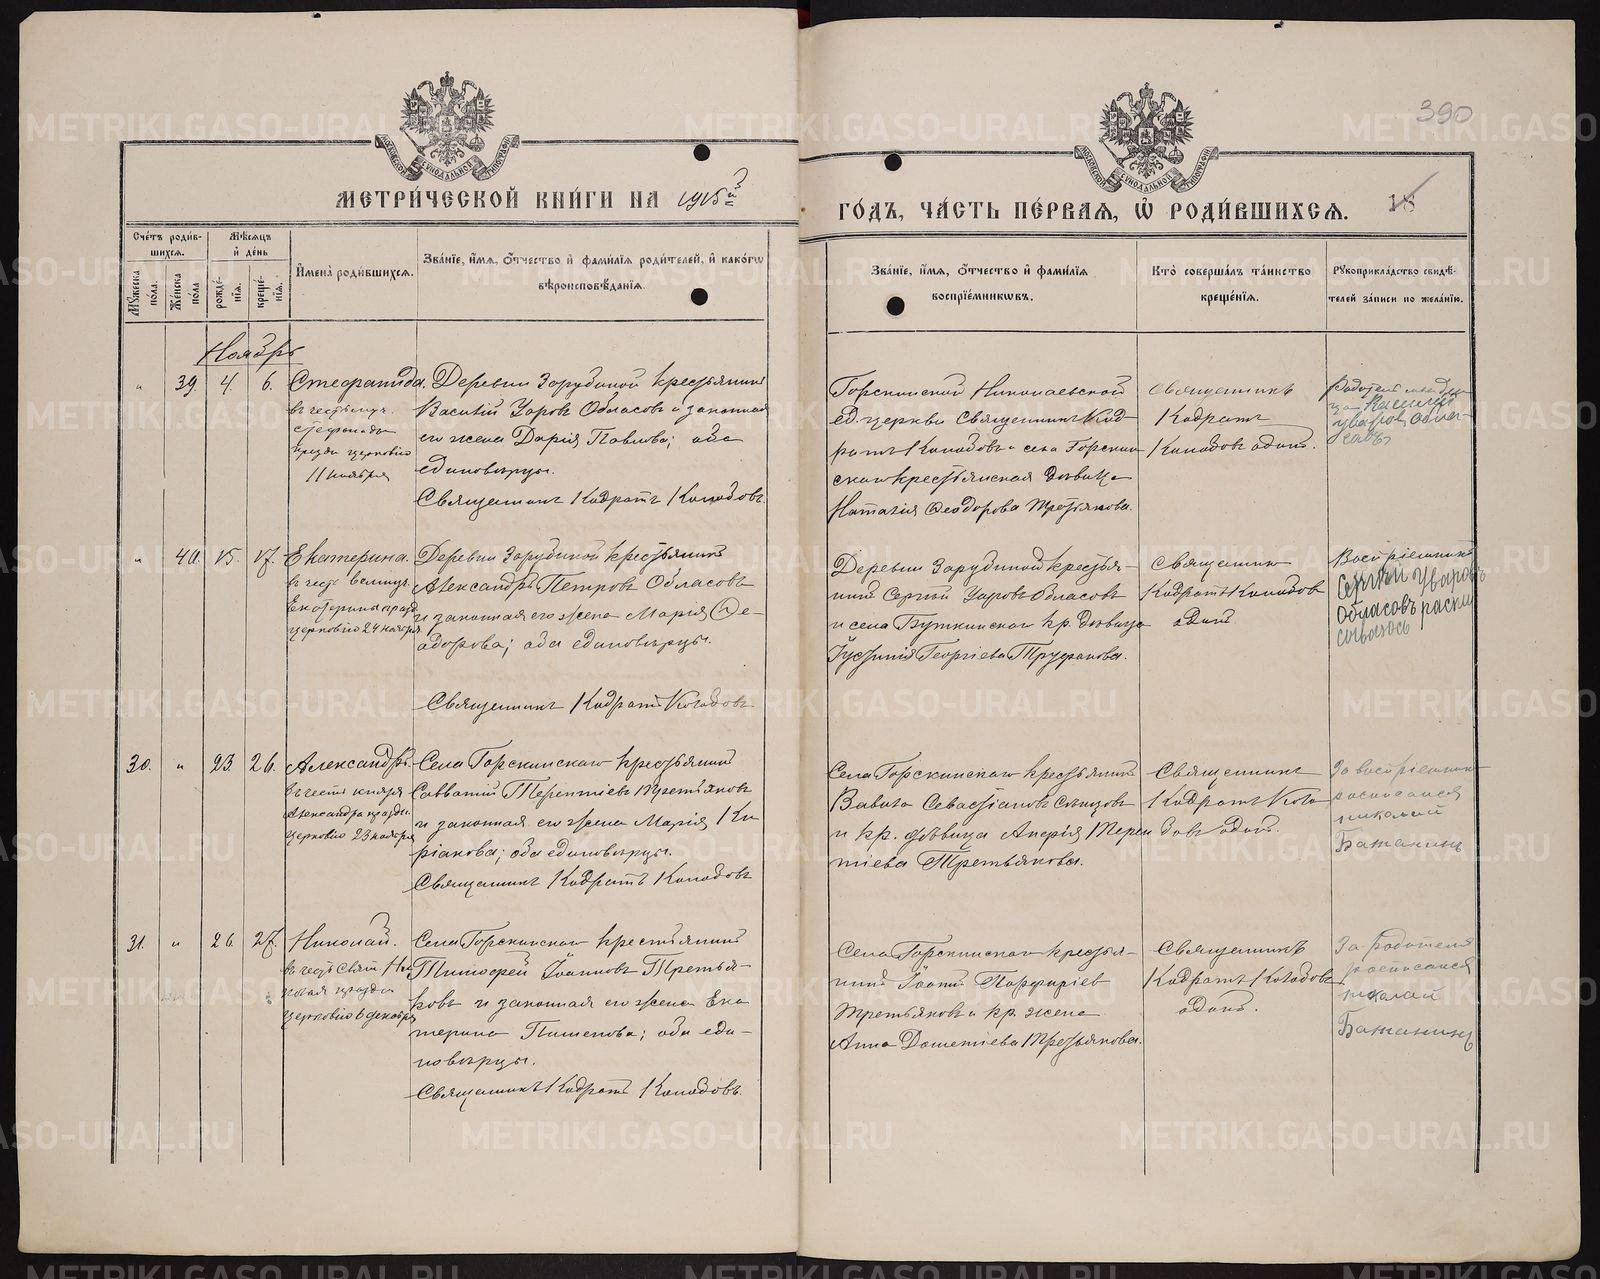 390
МОСКОВСКОЙ СУНОДАЛЬНОЙ ТИПОГРАФІИ
МОСКОВСКОЙ СУНОДАЛЬНОЙ ТИПОГРАФІИ
МЕТРИ́ЧЕСКОЙ КНИ́ГИ НА 1915й
ГО́ДЪ, ЧА́СТЬ ПЕ́РВАЯ, Ѡ҆ РОДИ́ВШИХСЯ.
Сче́тъ роди́в-
шихся.
Мѣ́сяцъ
и҆ де́нь
Мꙋ́жеска по́ла.
Же́нска по́ла
рожде́-нїѧ.
креще́-нїѧ.
И҆мена̀ роди́вшихся.
Зва́нїе, и҆́мя, ѻ҆́тчество и҆ фами́лїя роди́телей, и҆ како́гѡ
вѣроисповѣ́данїя.
Зва́нїе, и҆́мя, ѻ҆́тчество и҆ фами́лїя
воспрїе́мникѡвъ.
Кто̀ соверша́лъ та́инство
креще́нїя.
Рꙋкоприкла́дство свидѣ́-
телей за́писи по жела́нїю.
Ноябрь
" 39 4. 6.
Стефанида
въ честь муч.
Стефаниды
праздн. церковію
11 ноября
Деревни Зарубиной крестьянинъ
Василій Уаровъ Обласовъ и законная
его жена Дарія Павлова; оба
единовѣрцы.
Священникъ Кодратъ Колодовъ.
Горскинской Николаевской
ед. церкви Священникъ Код-
ратъ Колодовъ и села Горскин
скаго крестьянская дѣвица
Наталія Ѳеодорова Третьякова.
Священникъ
Кодратъ
Колодовъ одинъ.
Василій
Уаровъ Обла-
совъ
" 40. 15. 17.
Екатерина.
въ честь великом.
Екатерины празд.
церковію 24 ноября
Деревни Зарубиной крестьянинъ
Александръ Петровъ Обласовъ
и законная его жена Марія Ѳе-
одорова; оба единовѣрцы.
Священникъ Кодратъ Колодовъ
Деревни Зарубиной крестья-
нинъ Сергій Уаровъ Обласовъ
и села Буткинскаго кр. дѣвица
Іустинія Георгіева Труфанова.
Священникъ
Кодратъ Колодовъ
одинъ.
Воспріемникъ
Сергѣй Уваровъ
Обласовъ распи
совалось
30. " 23. 26.
Александръ.
въ честь князя
Александра праздн.
церковію 23 ноября
Села Горскинскаго крестьянинъ
Савватій Терентіевъ Третьяковъ
и законная его жена Марія Ки
ріакова; оба единовѣрцы.
Священникъ Кодратъ Колодовъ
Села Горскинскаго крестьянинъ
Вавила Севастіановъ
и кр. дѣвица Анфія Терен
тіева Третьякова.
Священникъ
Кодратъ Коло
довъ одинъ.
За воспріемник
росписался
николай
Батанинъ
31. " 26. 27.
Николай.
въ честь Свят. Ни
колая праздн.
церковію 6 декабря
Села Горскинскаго крестьянинъ
Тимофей Іоанновъ Третья-
ковъ и законная его жена Ека
терина Пименова; оба еди-
новѣрцы.
Священникъ Кодратъ Колодовъ.
Села Горскинскаго крестья-
нинъ Іоаннъ Порфиріев
Третьяковъ и кр. жена
Анна Дометіева Третьякова.
Священникъ
Кодратъ Колодовъ
одинъ.
За родителя
росписался
николай
Батанинъ
METRIKI.GASO-URAL.RU